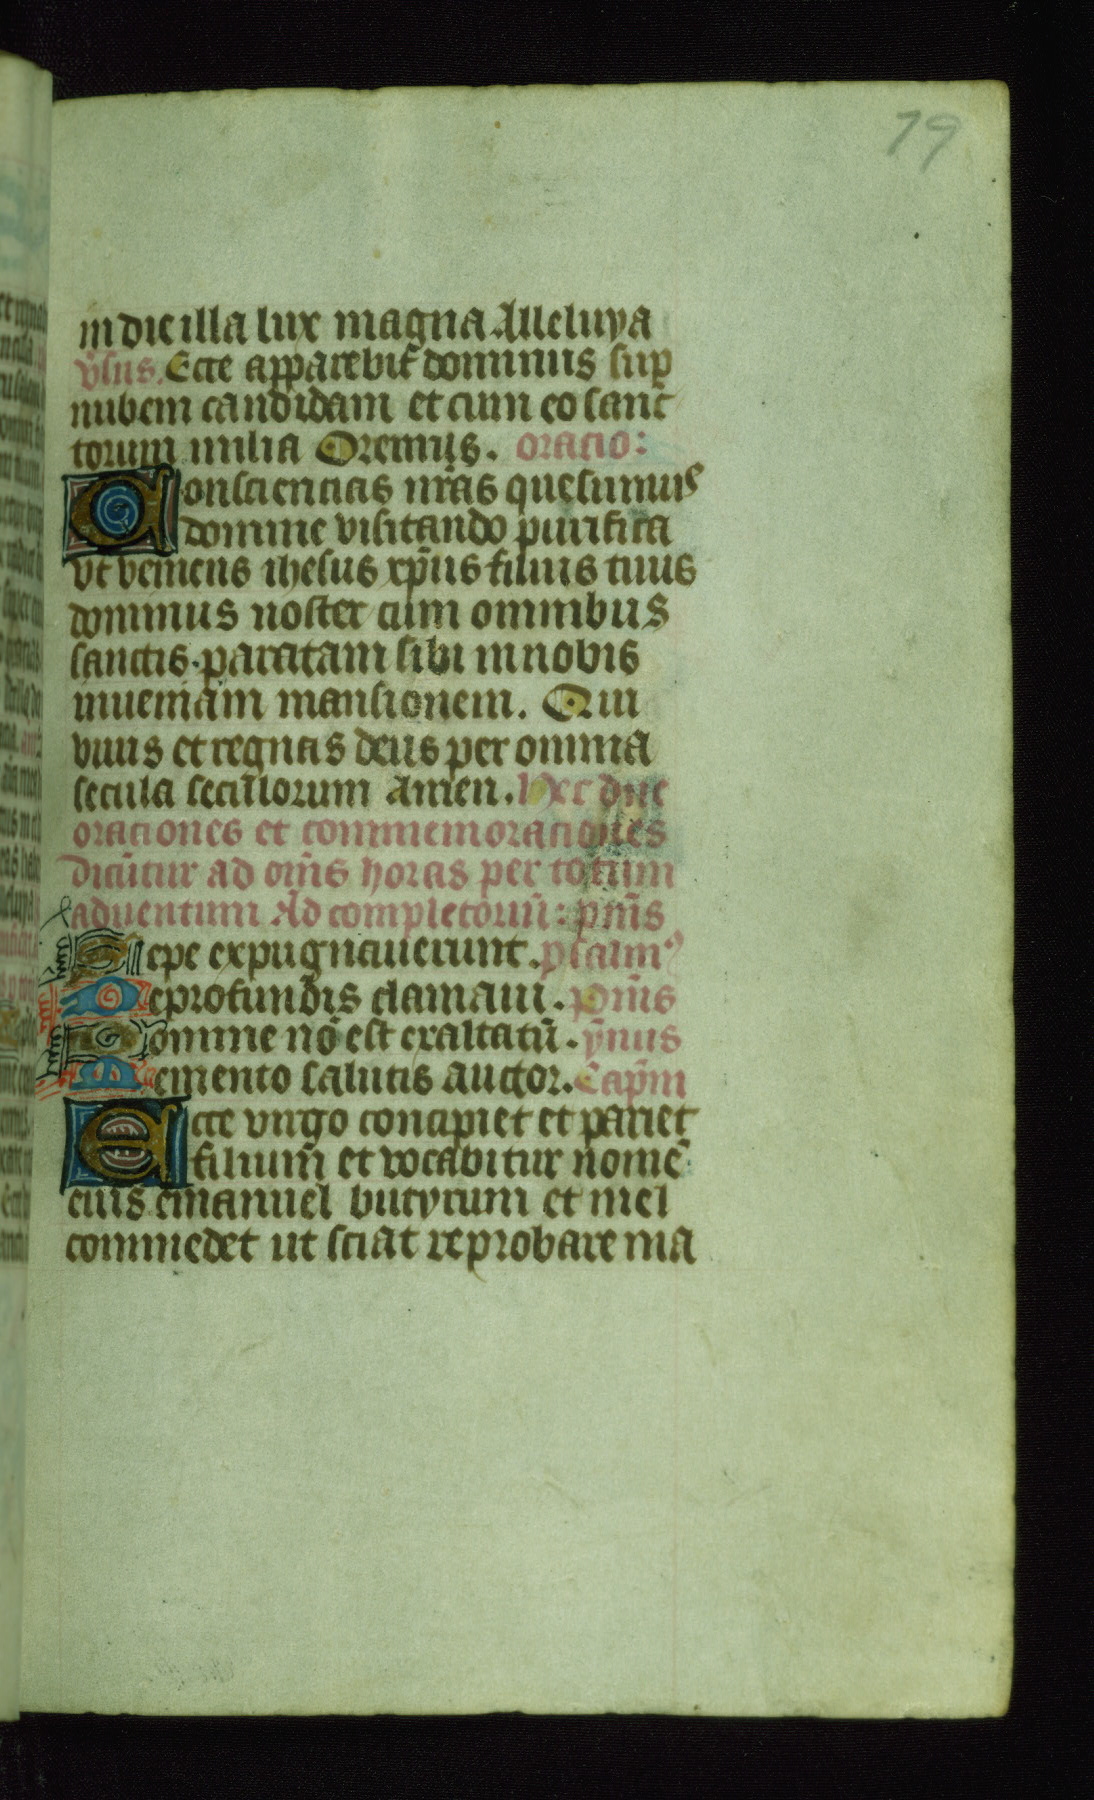 79
in die illa lux magna Alleluya
v̄sus. Ecce apparebit̄ dominus sup̱
nubem candidam et cum eo sanc
torum milia Oremus. oratio:
Consciencias nr̄as quesumus
domine visitando purifica
vt veniens ihesus xp̄us filius tuus
dominus noster cum omnibus
sanctis paratam sibi in nobis
inueniam mansionem. Qui
viuis et regnas deus per omnia
secula seculorum Amen. Hec due
orationes et commemorationes
dicūtur ad om̄s horas per totum
aduentum Ad completoriū: p̄m̄s
Sepe expugnauerunt. psalm9
De profundis clamaui. p̄m̄s
Domine nō est exaltatū. ȳnus
Memento salutis auctor. Cap̄m
Ecce virgo concipiet et pariet
filium et vocabitur nomē
eius emanuel butyrum et mel
commedet ut sciat reprobare ma